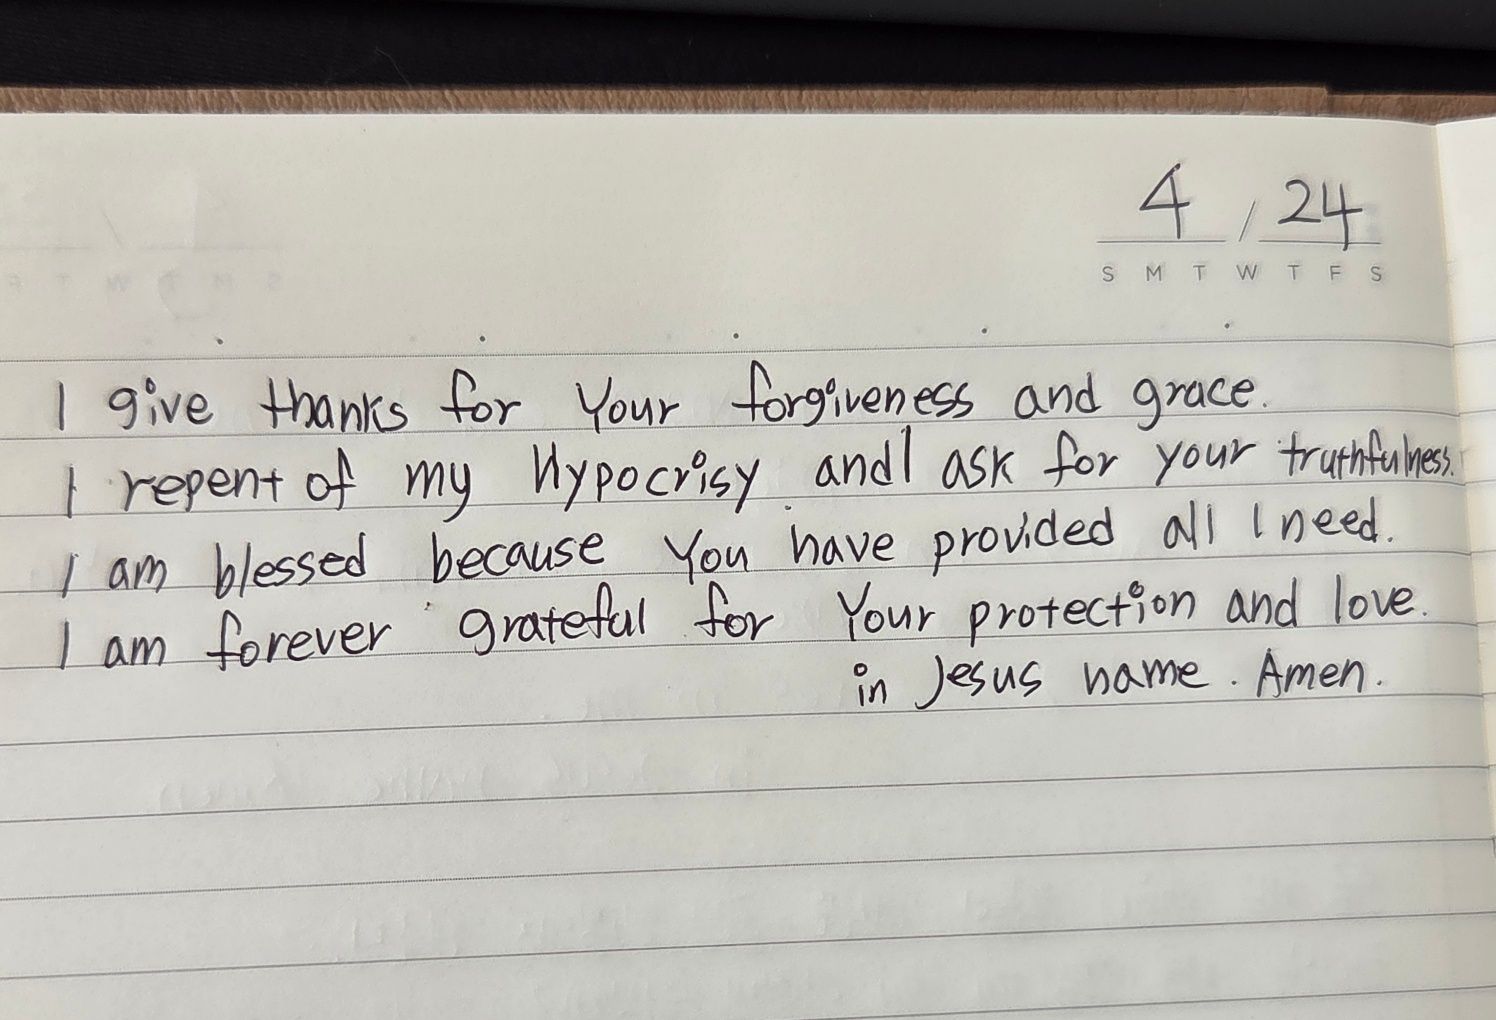 4 / 24
S M T W T F S
I give thanks for Your forgiveness and grace.
I repent of my Hypocrisy and I ask for your truthfulness.
I am blessed because You have provided all I need.
I am forever grateful for Your protection and love.
in Jesus name. Amen.